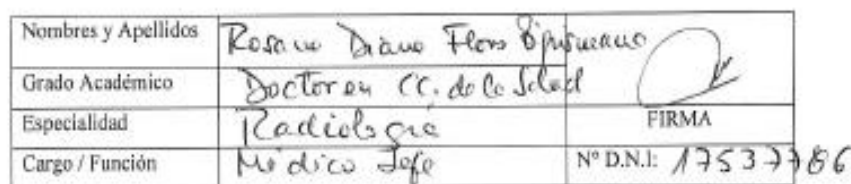 Nombres y Apellidos Rosana Diana Flores
Grado Académico Doctor en CC. de la Salud
Especialidad Radiología FIRMA
Cargo / Función Médico Jefe Nº D.N.I: 17537786